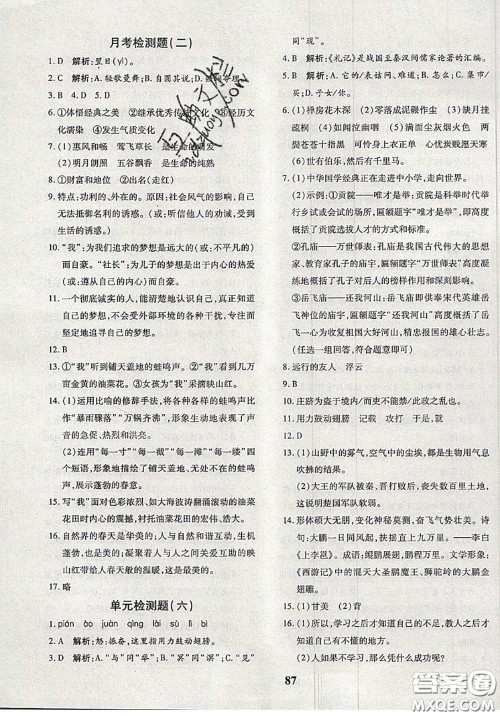 月考检测题(二)
1. D 解析:翌日(yì)。
2. C 解析:A. 轻歌曼舞;B. 自圆其说;D.
3. B 4. D 5. D
6. ①体悟经典之美 ②继承优秀传统
文化濡染 ④发生气质变化
7. (1)惠风和畅 莺飞草长 是生命的
(2)明月朗照 五谷飘香 是生命的纯熟
8. ①财富和地位 ②出名(走红)
9. 特点:功利的、外在的。原因:社会风气的影响,自己
无法抵御那样的诱惑。(或:听信他人的劝导,受到
名利的诱惑。)
10. “我”:为我们追求的梦想是远大的(或:不平凡的)
而自豪。“社长”:为儿子的梦想是出于内心的热爱
(或:高尚的)而自豪。
11. 一个彻底诚实的人,能清楚地认识自我,真正知道
自己的梦想,不会受外部环境的各种干扰,专注而
坚定地追寻自己的梦想。
12. B
13. ①“我”听到铺天盖地的蛙鸣声。②“我”看到几万
亩金黄的油菜花。③女孩为“我”采摘映山红。
14. (1)运用比喻的修辞手法,将此起彼伏的蛙鸣声比
作“暴雨骤落”“万锅齐沸”,形象生动地表现了声
音的急促、热烈和洪亮。
(2)连用“每一寸”“每一截”“每一块”“每一缕”4
个短语,形象地写出铺天盖地、无处不在的蛙鸣声,
展示蓬勃的春意。
15. 写“我”面对色彩浓烈、如大海波涛翻涌滚动的油菜
花田时内心的震撼,衬托油菜花田的宏伟、浩大。
16. 自然界的春天是华美的;人与自然和谐共处,生机
蓬勃,也是美的;凝聚着人与人之间关爱互助的映
山红带给人春天般的温暖,这温暖同样是美的。
17. 略
单元检测题(六)
1. pián áo juàn qìng lài sù lì bì
2. A 解析:怒:振奋,这里指用力鼓动翅膀。
3. D 解析:A. “與”同“举”;B. “冥”同“溟”;C. “见”
同“现”。
4. B 解析:《礼记》是战国至秦汉间儒家论著的汇编。
5. B
6. (1)禅房花木深 (2)零落成泥碾作尘 (3)缺月挂
疏桐 (4)日如闻泣幽咽 (5)满面尘灰烟火色 两
鬓苍苍十指黑 可怜身上衣正单 心忧炭贱愿天寒
7. (1)中华国学经典正在走进中小学,走向世界。
(2)示例:①贡院——唯才是举:贡院是科举时代举
行乡试或会试的场所,匾额题字“唯才是举”,高度
概括了贡院选拔人才的方式和功用。
②孔庙——万世师表:孔子是我国古代伟大的思想
家、教育家孔子的庙宇,匾额题字“万世师表”高度凝
练地概括了孔子对后人的榜样作用和深刻影响。
③岳飞庙——还我河山:岳飞庙是供奉宋代英雄岳
飞神位的庙宇,匾额题字“还我河山”,概括了岳飞
一生收复祖国大好河山,精忠报国的雄心壮志。
(任选一组回答,符合题意即可)
8. 远行的友人 浮云
9. B
10. 庄蹻为盗于境内/而吏不能禁/此政之乱也。
11. 用力鼓动翅膀 记载 攻打 于是,就
12. D
13. (1)山野中的雾气,空气中的尘埃,都是生物用气息
吹拂的结果。
(2)大王的军队被秦、晋打败,丧失了数百里土地,
这说明楚国军队软弱。
14. 形体硕大无朋,变化神秘莫测,奋飞气势壮美。诗
句示例:大鹏一日同风起,扶摇直上九万里。——李
白《上李邕》。成语:鲲鹏展翅、鹏程万里。文学形象:
《西游记》中的混天大圣鹏魔王、狮驼岭的大鹏金
翅雕。
15. (1)甘美 (2)背
16. (1)所以,学习之后才知道自己有不足,教人之后才
知道自己有不懂之处。
(2)人如果不学习,凭什么成功呢?
87